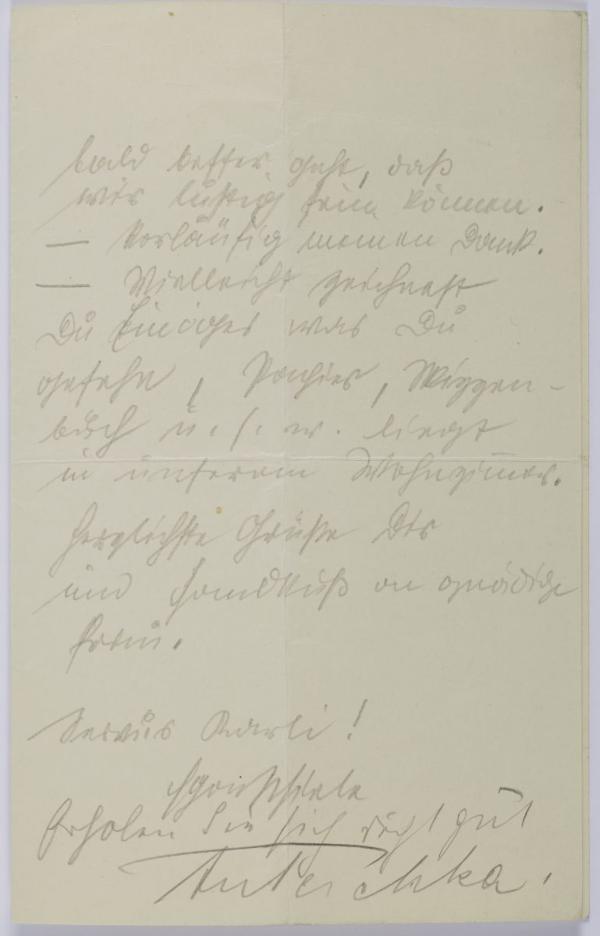 bald besser geht, daß
wir lustig sein können.
— Vorläufig meinen Dank.
— Vielleicht zeichnest
Du Einiges was Du
gesehn, Papier, Skizzen-
buch u. s. w. liegt
in unserem Wohnzimmer.
Herzlichste Grüße Dir
und Handkuß an gnädige
Frau.
Servus Karli!
Egon Schiele
Erholen Sie sich recht gut